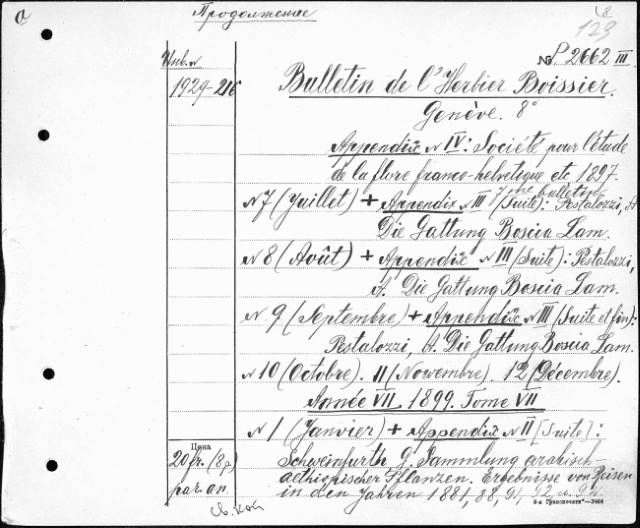 a
Продолжение
18
123
Инв. №
№ P 2662 III
1929-216
Bulletin de l'Herbier Boissier.
Genève. 8°
Appendix N IV: Société pour l'étude
de la flore franco-helvétique etc 1897.
7me bulletin
N 7 (Juillet) + Appendix N III (Suite): Pestalozzi, A
Die Gattung Boscia Lam.
N 8 (Août) + Appendix N III (Suite): Pestalozzi,
A. Die Gattung Boscia Lam.
N 9 (Septembre) + Appendix N III (Suite et fin):
Pestalozzi, A. Die Gattung Boscia Lam.
N 10 (Octobre). 11 (Novembre). 12 (Décembre).
Année VII 1899. Tome VII
N 1 (Janvier) + Appendix N II [Suite]:
Цена
20 fr. (8 р)
par an
Schweinfurth G. Sammlung arabisch-
aethiopischer Pflanzen. Ergebnisse von Reisen
in den Jahren 1881, 88, 91, 92 u. 94.
св. кой